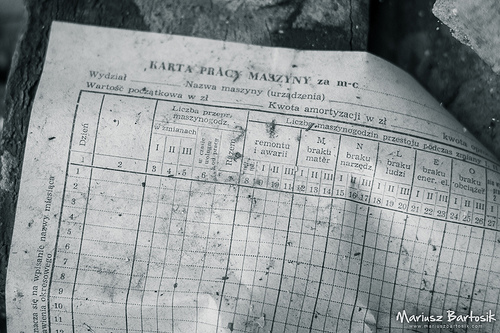 KARTA PRACY MASZYNY za m-c
Wydział Nazwa maszyny (urządzenia)
Wartość początkowa w zł Kwota amortyzacji w zł kwota
Dzień
Liczba przepr. maszynogodz.
w zmianach
I II III
Razem
Liczba maszynogodzin przestoju podczas zmiany
remontu i awarii
M braku mater.
N braku narzędz.
L braku ludzi
E braku ener. el.
O braku obciążen.
I II III I II III I II III I II III I II III I II
1 2 3 4 5 6 7 8 9 10 11 12 13 14 15 16 17 18 19 20 21 22 23 24 25 26 27
1
2
3
4
5
6
7
8
9
10
11
12
na wpisanie nazwy miesiąca
Mariusz Bartosik
www.mariuszbartosik.com